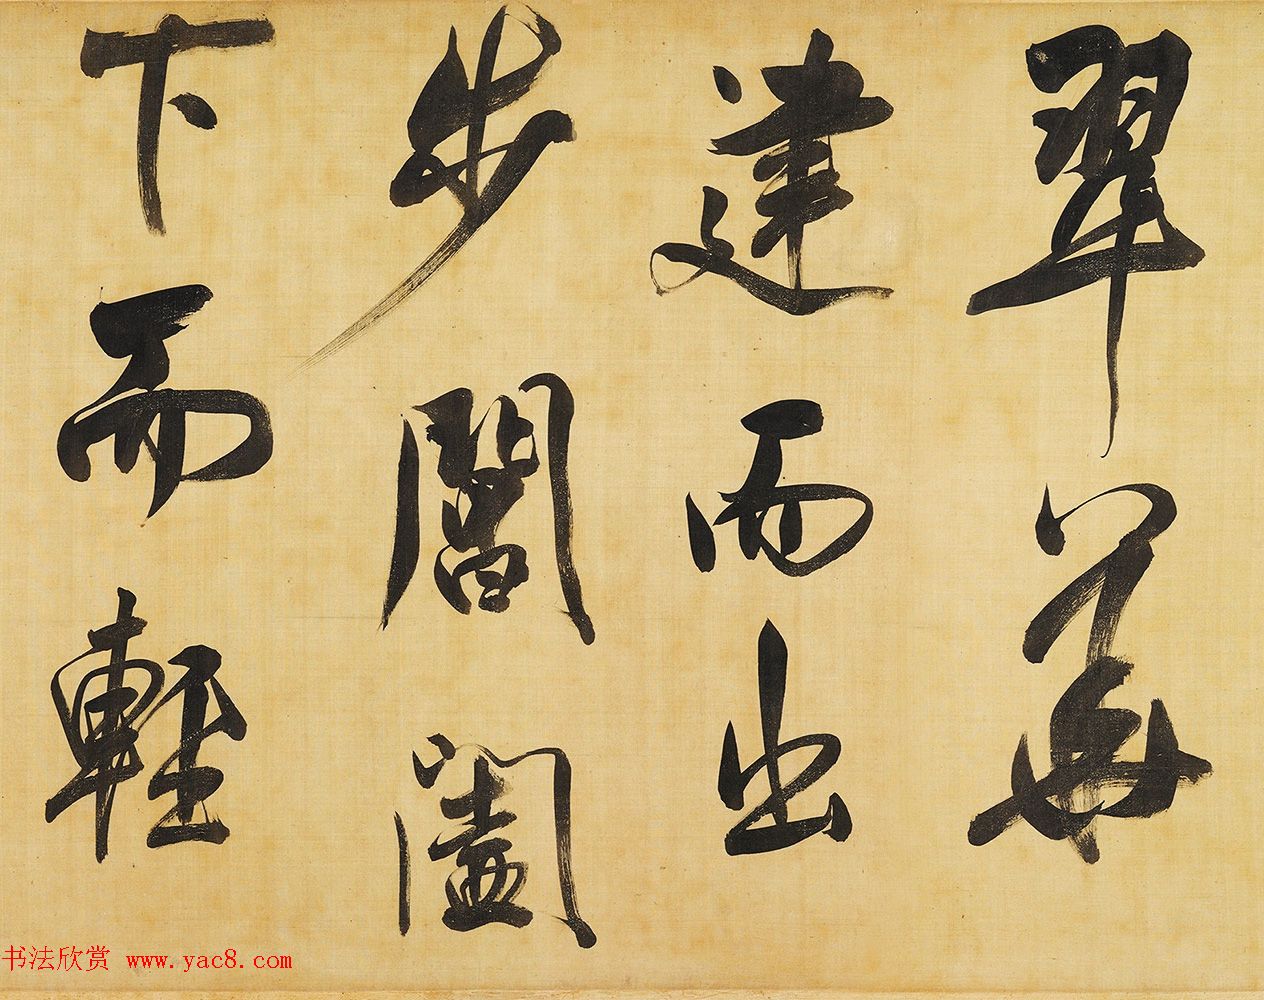 翠華
建而出
步閶闔
下而輕
书法欣赏 www.yac8.com